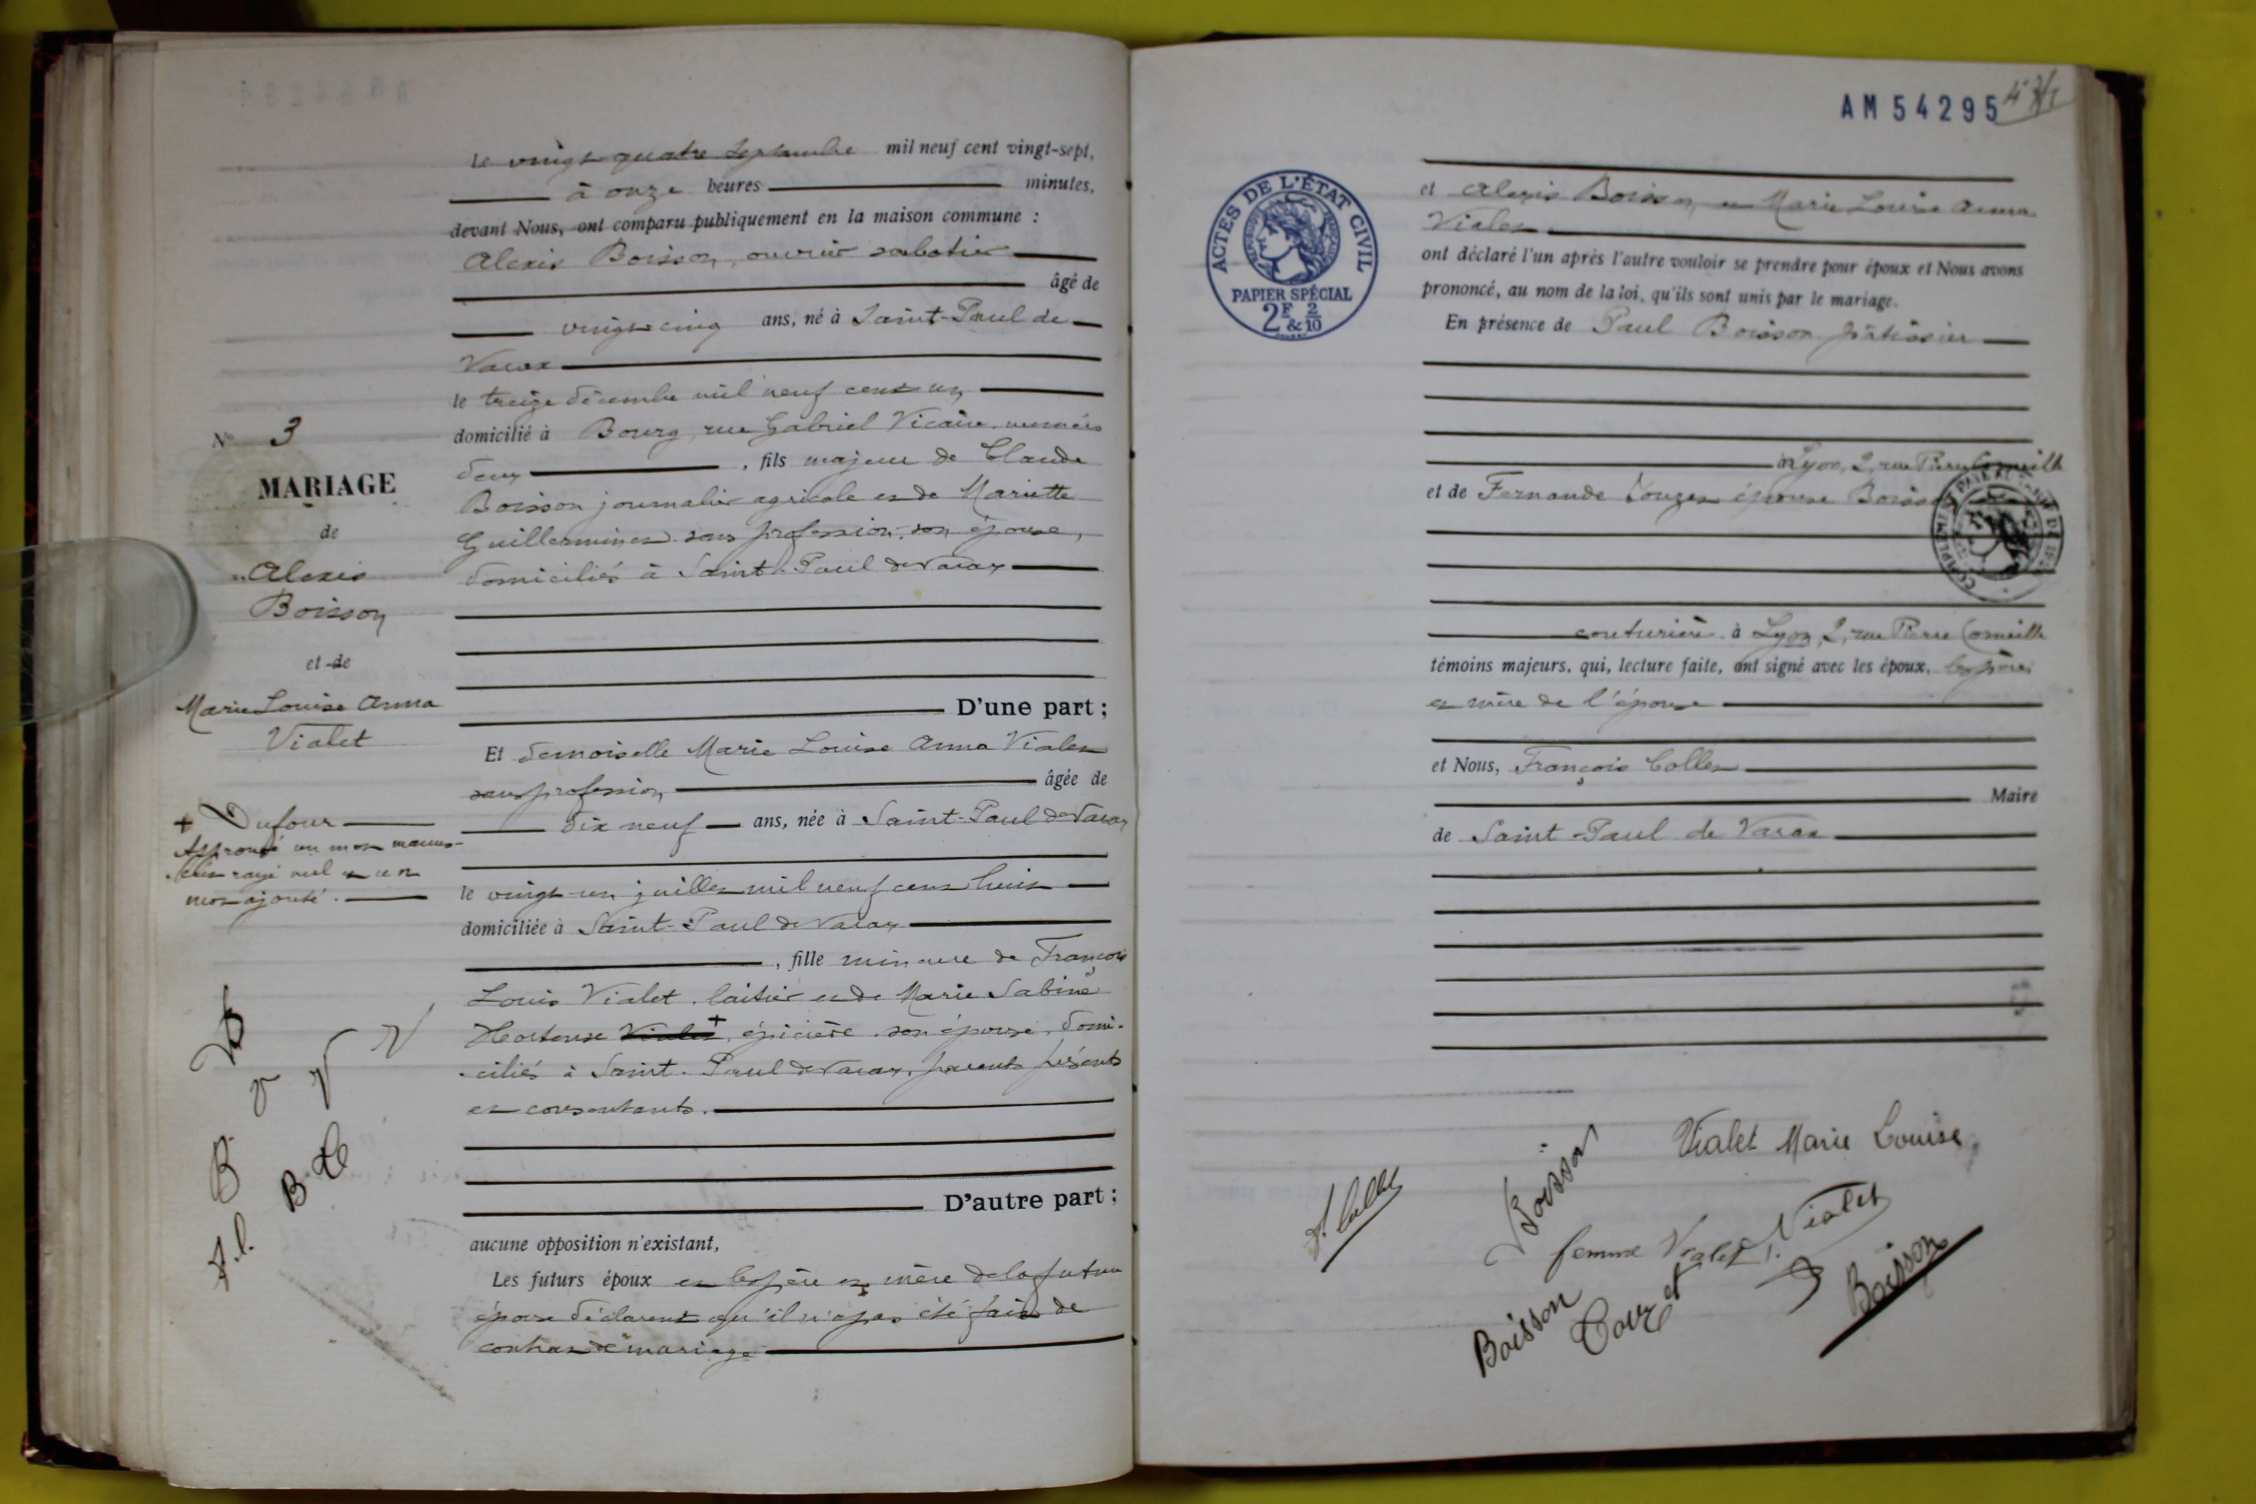 Le vingt quatre septembre mil neuf cent vingt-sept,
à onze heures minutes,
devant Nous, ont comparu publiquement en la maison commune :
Alexis Boisson, ouvrier sabotier
âgé de
vingt cinq ans, né à Saint-Paul de
Varax
le treize décembre mil neuf cent un
domicilié à Bourg, rue Gabriel Vicaire, numéro
deux , fils majeur de Claude
Boisson journalier agricole et de Mariette
Guillerminet sans profession, son épouse,
domiciliés à Saint-Paul de Varax
D'une part ;
Et demoiselle Marie Louise Anna Vialet
sans profession âgée de
dix neuf ans, née à Saint-Paul de Varax
le vingt un juillet mil neuf cent huit
domiciliée à Saint-Paul de Varax
, fille mineure de François
Louis Vialet, laitier et de Marie Sabine
Hortense Vialet +, épicière, son épouse, domi-
-ciliés à Saint-Paul de Varax, parents présents
et consentants.
D'autre part ;
aucune opposition n'existant,
Les futurs époux et les père et mère de la future
épouse déclarent qu'il n'a pas été fait de
contrat de mariage
No 3
MARIAGE
de
Alexis
Boisson
et de
Marie Louise Anna
Vialet
+ Dufour
Approuvé un mot manus-
crit rayé nul et un
mot ajouté.
V
V
N
B
B
F. C.
AM 54295
ACTES DE L'ÉTAT CIVIL
PAPIER SPÉCIAL
2F & 2/10
et Alexis Boisson et Marie Louise Anna
Vialet
ont déclaré l'un après l'autre vouloir se prendre pour époux et Nous avons
prononcé, au nom de la loi, qu'ils sont unis par le mariage.
En présence de Paul Boisson pâtissier
à Lyon, 2, rue Pierre Corneille
et de Fernande Couzet épouse Boisson
couturière à Lyon, 2, rue Pierre Corneille
témoins majeurs, qui, lecture faite, ont signé avec les époux, les père
et mère de l'épouse
et Nous, François Collet
Maire
de Saint-Paul de Varax
Vialet Marie Louise
Boisson
F. Collet
Vialet
femme Vialet
Boisson
Boisson
Couzet